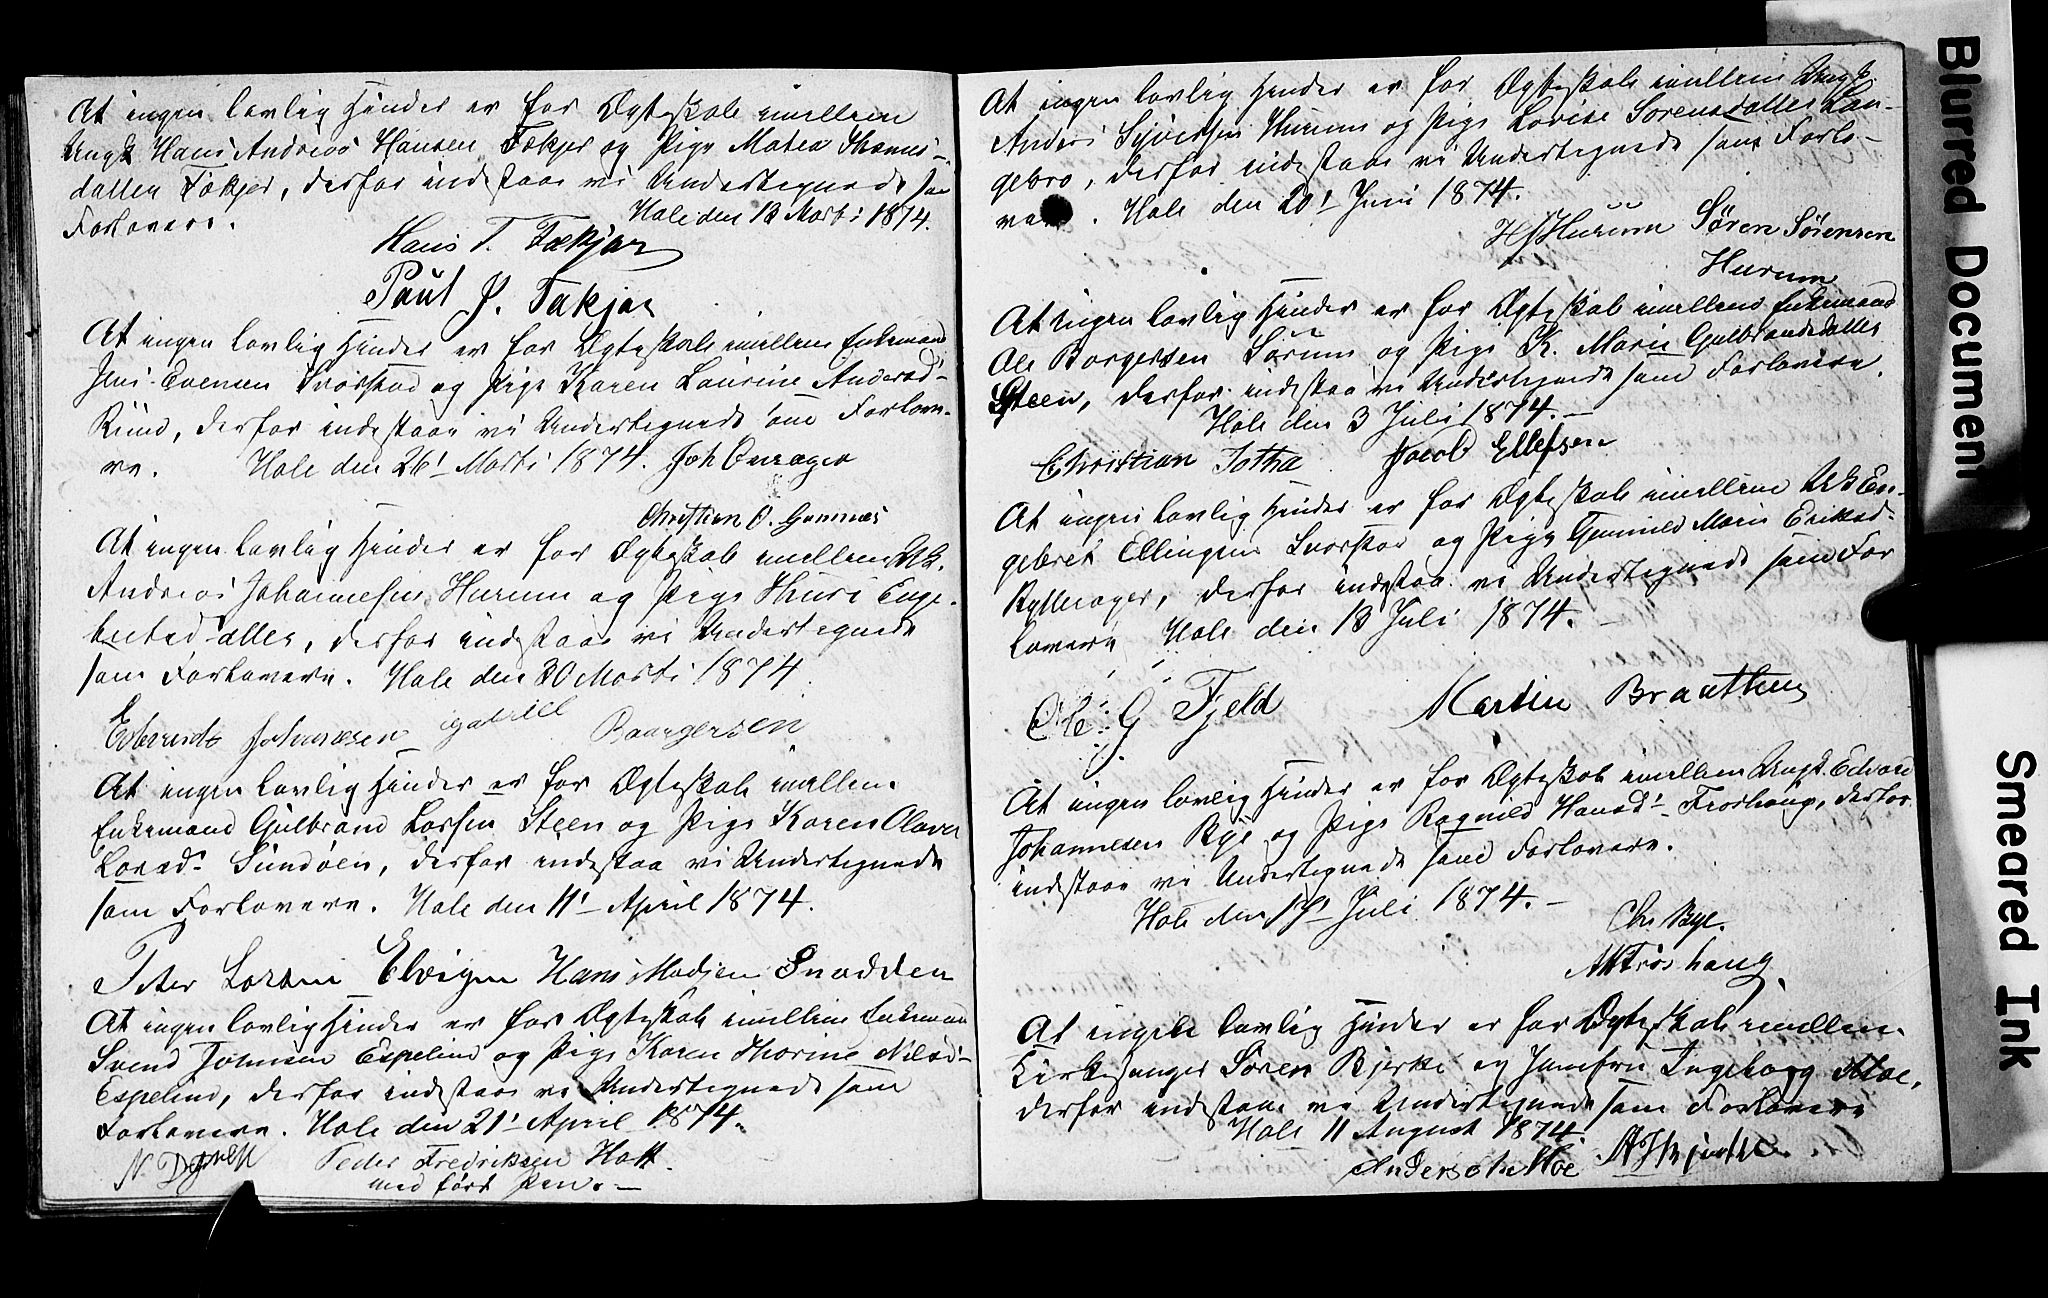 At ingen lovlig Hinder er for Ægteskab imellem
Ungk Hans Andreas Hansen Fækjer og Pige Matea Thomas-
datter Fækjer, derfor indestaae vi Undertegnede som
Forlovere. Hole den 13 Marti 1874.
Hans T. Fækjær
Paul J. Fækjær
At ingen lovlig Hinder er for Ægteskab imellem Enkemand
Jens Evensen Svarstad og Pige Karen Laurine Andersd-
Rund, derfor indestaae vi Undertegnede som Forlov-
re. Hole den 26' Marti 1874. Joh Onsager
Christian O. Gomnæs
At ingen lovlig Hinder er for Ægteskab imellem Uk.
Andreas Johannesen Hurum og Pige Thuri Enge-
bretsdatter, derfor indestaae vi Undertegnede
som Forlovere. Hole den 30 Marti 1874
Johannesen gabriel Baargersen
At ingen lovlig Hinder er for Ægteskab imellem
Enkemand Gulbrand Larsen Steen og Pige Karen Olava
Larsd. Sundøen, derfor indestaa vi Undertegnede
som Forlovere. Hole den 11' April 1874.
Peter Larsen Elvigen Hans Madsen Snadden
At ingen lovlig Hinder er for Ægteskab imellem Enkeman
Svend Johnsen Espelind og Pige Karen Thorine Nilsd-
Espelind, derfor indestaae vi Undertegnede som
Forlovere. Hole den 21' April 1874.
N. Peder Fredriksen Hatt
med ført Pen. -
At ingen lovlig Hinder er for Ægteskab imellem Ungk.
Anders Hurum og Pige Lovise Sørensdatter Lon-
gebro, derfor indestaae vi Undertegnede som Forlo-
vere. Hole den 20' Juni 1874.
HJHurum Søren Sørensen
Hurum
At ingen lovlig Hinder er for Ægteskab imellem Enkemand
Ole Borgersen Sørum og Pige K. Marie Gulbrandsdatter
Steen, derfor indestaae vi Undertegnede som Forlovere.
Hole den 3 Juli 1874. -
Christian Totha Jacob Ellefsen
At ingen lovlig Hinder er for Ægteskab imellem Uk En-
gebret Ellingsen Svarstad og Pige Gunnild Marie Eriksd-
Rytterager, derfor indestaa vi Undertegnede som For
lovere Hole den 13 Juli 1874. -
Ole G Fjeld Martin Braathen
At ingen lovlig Hinder er for Ægteskab imellem Ungk. Edvard
Johannesen Bye og Pige Ragnild Hansd' Frøshaug, derfor
indestaae vi Undertegnede som Forlovere.
Hole den 17' Juli 1874. -
Chr Bye.
Frøshaug.
At ingen lovlig Hinder er for Ægteskab imellem
Kirkesanger Søren Bjerke og Jomfru Ingeborg Moe,
derfor indestaae vi Undertegnede som Forlovere
Hole 11 August 1874.
Anders Moe
Blurred Document
Smeared Ink